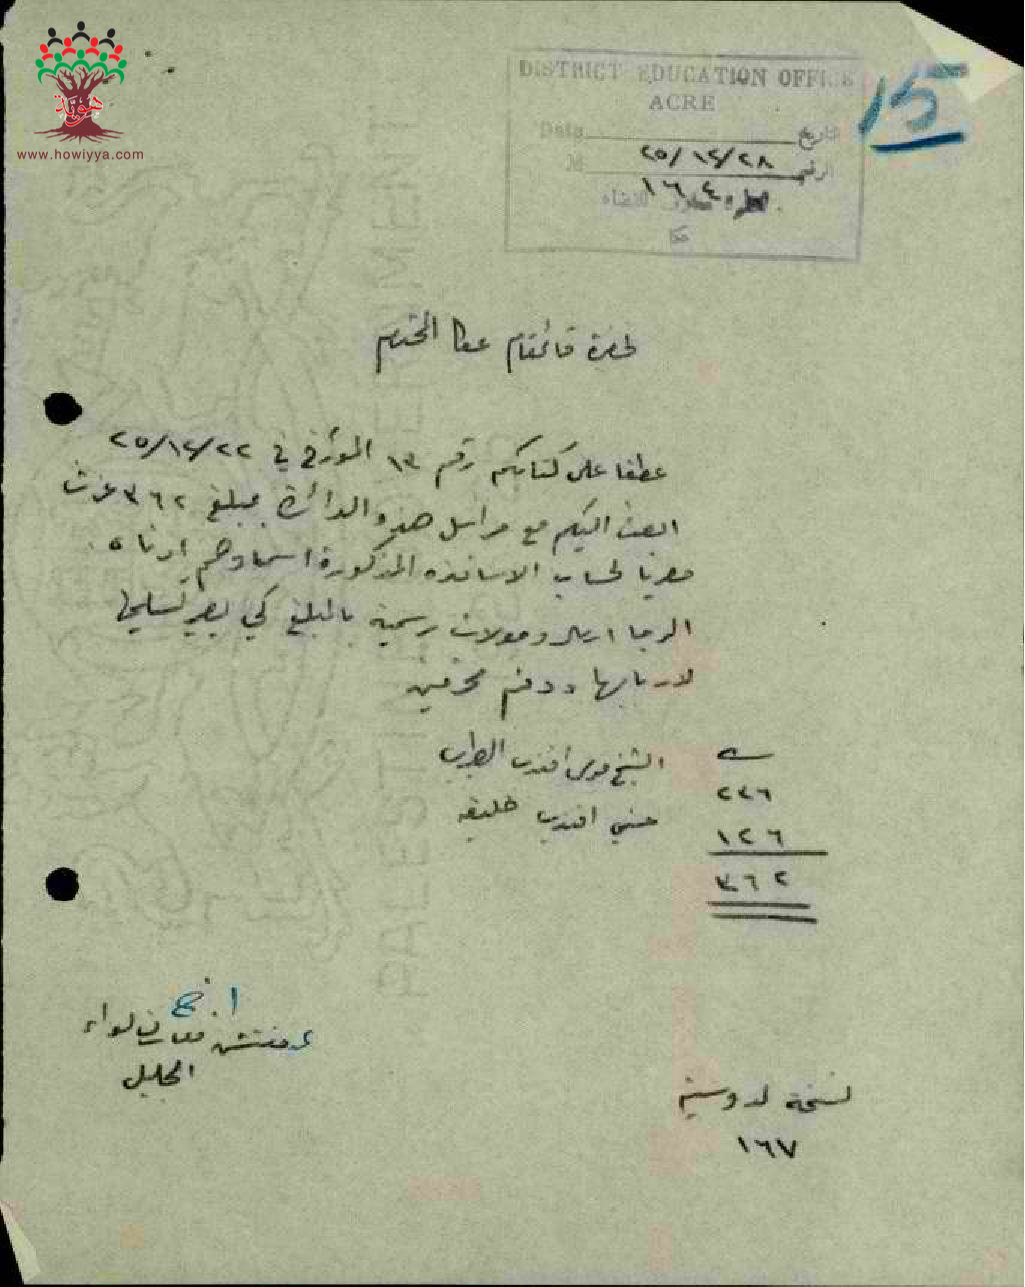 هوية
www.howiyya.com
DISTRICT EDUCATION OFFICE
ACRE
Date تاريخ
٢٥/١٢/٢٨
№ الرقم
١٦٤
معارف القضاء
عكا
15
لحضرة قائمقام عكا المحترم
عطفا على كتابكم رقم ١٣ المؤرخ في ٢٥/١٢/٢٢
ابعث اليكم مع مراسل هذه الدائرة بمبلغ ٣٦٢ غرش
مصريا لحساب الاساتذه المذكورة اسماوهم ادناه
الرجا ارسال وصولات رسمية بالمبلغ كي يصير تسليمها
لاربابها ودمتم محترمين
٢٣٦ الشيخ موسى افندي الطبري
١٢٦ حسني افندي خليفه
٣٦٢
مفتش معارف لواء
الجليل
نسخة لدوسية
١٦٧